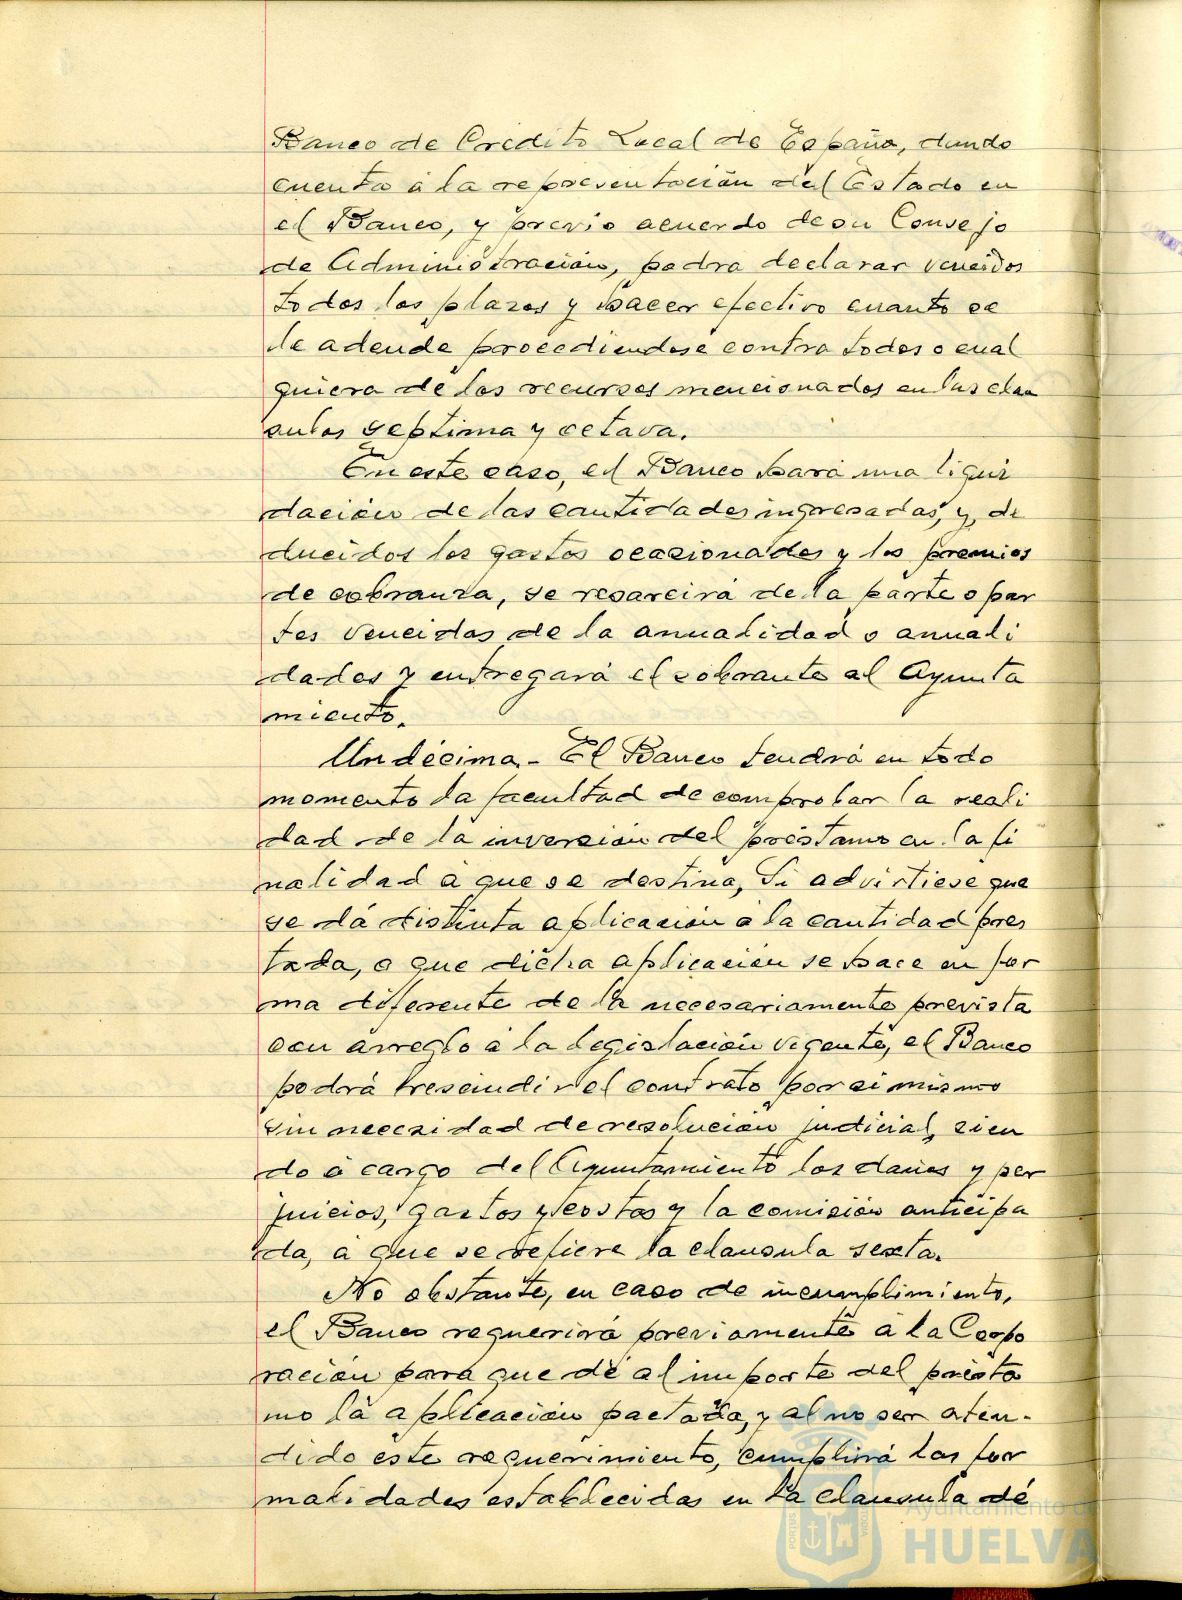 Banco de Credito Local de España, dando
cuenta á la representación del Estado en
el Banco, y previo acuerdo de su Consejo
de Administración, podra declarar vencidos
todos los plazos y hacer efectivo cuanto se
le adeude procediendose contra todos o cual
quiera de los recursos mencionados en las clau
sulas septima y octava.
En este caso, el Banco hará una liqui
dación de las cantidades ingresadas, y, de
ducidos los gastos ocasionados y los premios
de cobranza, se resarcirá de la parte o par
tes vencidas de la anualidad o anuali
dades y entregará el sobrante al Ayunta
miento.
Undécima.- El Banco tendrá en todo
momento la facultad de comprobar la reali
dad de la inversión del préstamo en la fi
nalidad a que se destina, Si advirtiese que
se dá distinta aplicación á la cantidad pres
tada, o que dicha aplicación se hace en for
ma diferente de la necesariamente prevista
con arreglo á la legislación vigente, el Banco
podrá rescindir el contrato por si mismo
sin necesidad de resolución judicial, sien
do á cargo del Ayuntamiento los daños y per
juicios, gastos y costas y la comisión anticipa
da, á que se refiere la clausula sexta.
No obstante, en caso de incumplimiento,
el Banco requerirá previamente á la Corpo
ración para que dé al importe del présta
mo la aplicación pactada, y al no ser aten-
dido este requerimiento, cumplirá las for
malidades establecidas en la clausula dé
Ayuntamiento de
HUELVA
PORTUS